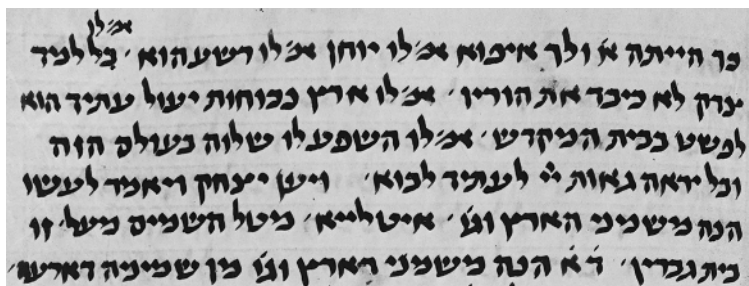 אמ׳ לו
כך הייתה א׳ ולך איפוא אמ׳ לו יוחן אמ׳ לו רשע הוא ׳ בל למד
צדק לא כיבד את הוריו ׳ אמ׳ לו ארץ נכוחות יעול עתיד הוא
לפשט בבית המקדש ׳ אמ׳ לו השפע לו שלוה בעולם הזה
ובל יראה גאות יי׳ לעתיד לבוא ׳ ויען יצחק ויאמר לעשו
הנה משמני הארץ וגו׳ ׳ איטלייא ׳ מטל השמים מעל ׳ זו
בית גברין ׳ ד׳א׳ הנה משמני הארץ וגו׳ מן שמינה דארעה ׳